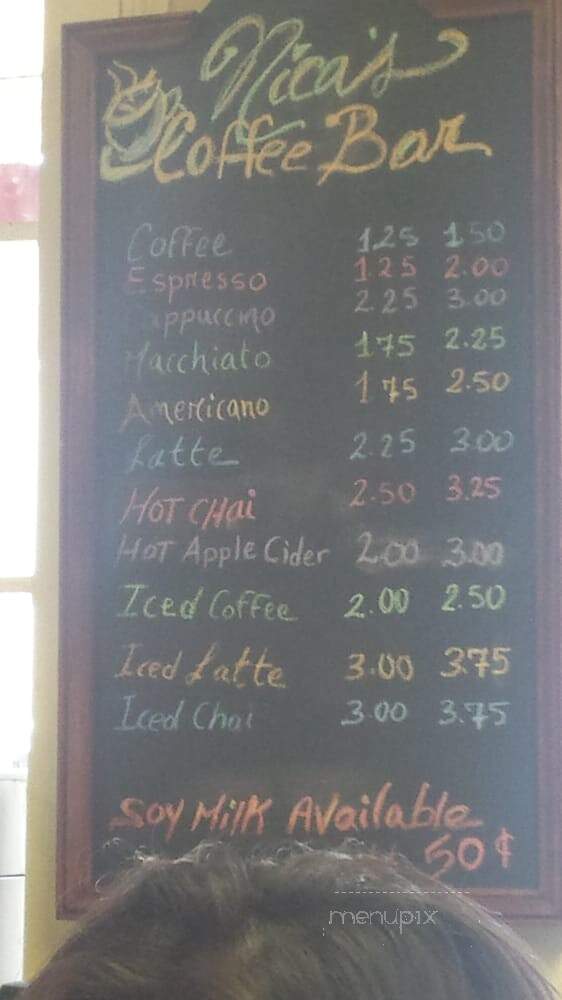 Nica's
Coffee Bar
Coffee 1.25 1.50
Espresso 1.25 2.00
Cappuccino 2.25 3.00
Macchiato 1.75 2.25
Americano 1.75 2.50
Latte 2.25 3.00
Hot Chai 2.50 3.25
Hot Apple Cider 2.00 3.00
Iced Coffee 2.00 2.50
Iced Latte 3.00 3.75
Iced Chai 3.00 3.75
Soy Milk Available
50¢
menupix